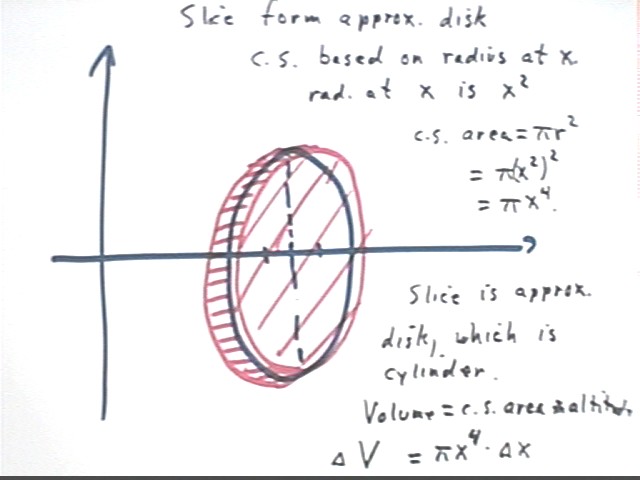 Slice form approx. disk
c.s. based on radius at x
rad. at x is x²
c.s. area = πr²
= π(x²)²
= πx⁴.
Slice is approx.
disk, which is
cylinder.
Volume = c.s. area * altitude
ΔV = πx⁴ · Δx